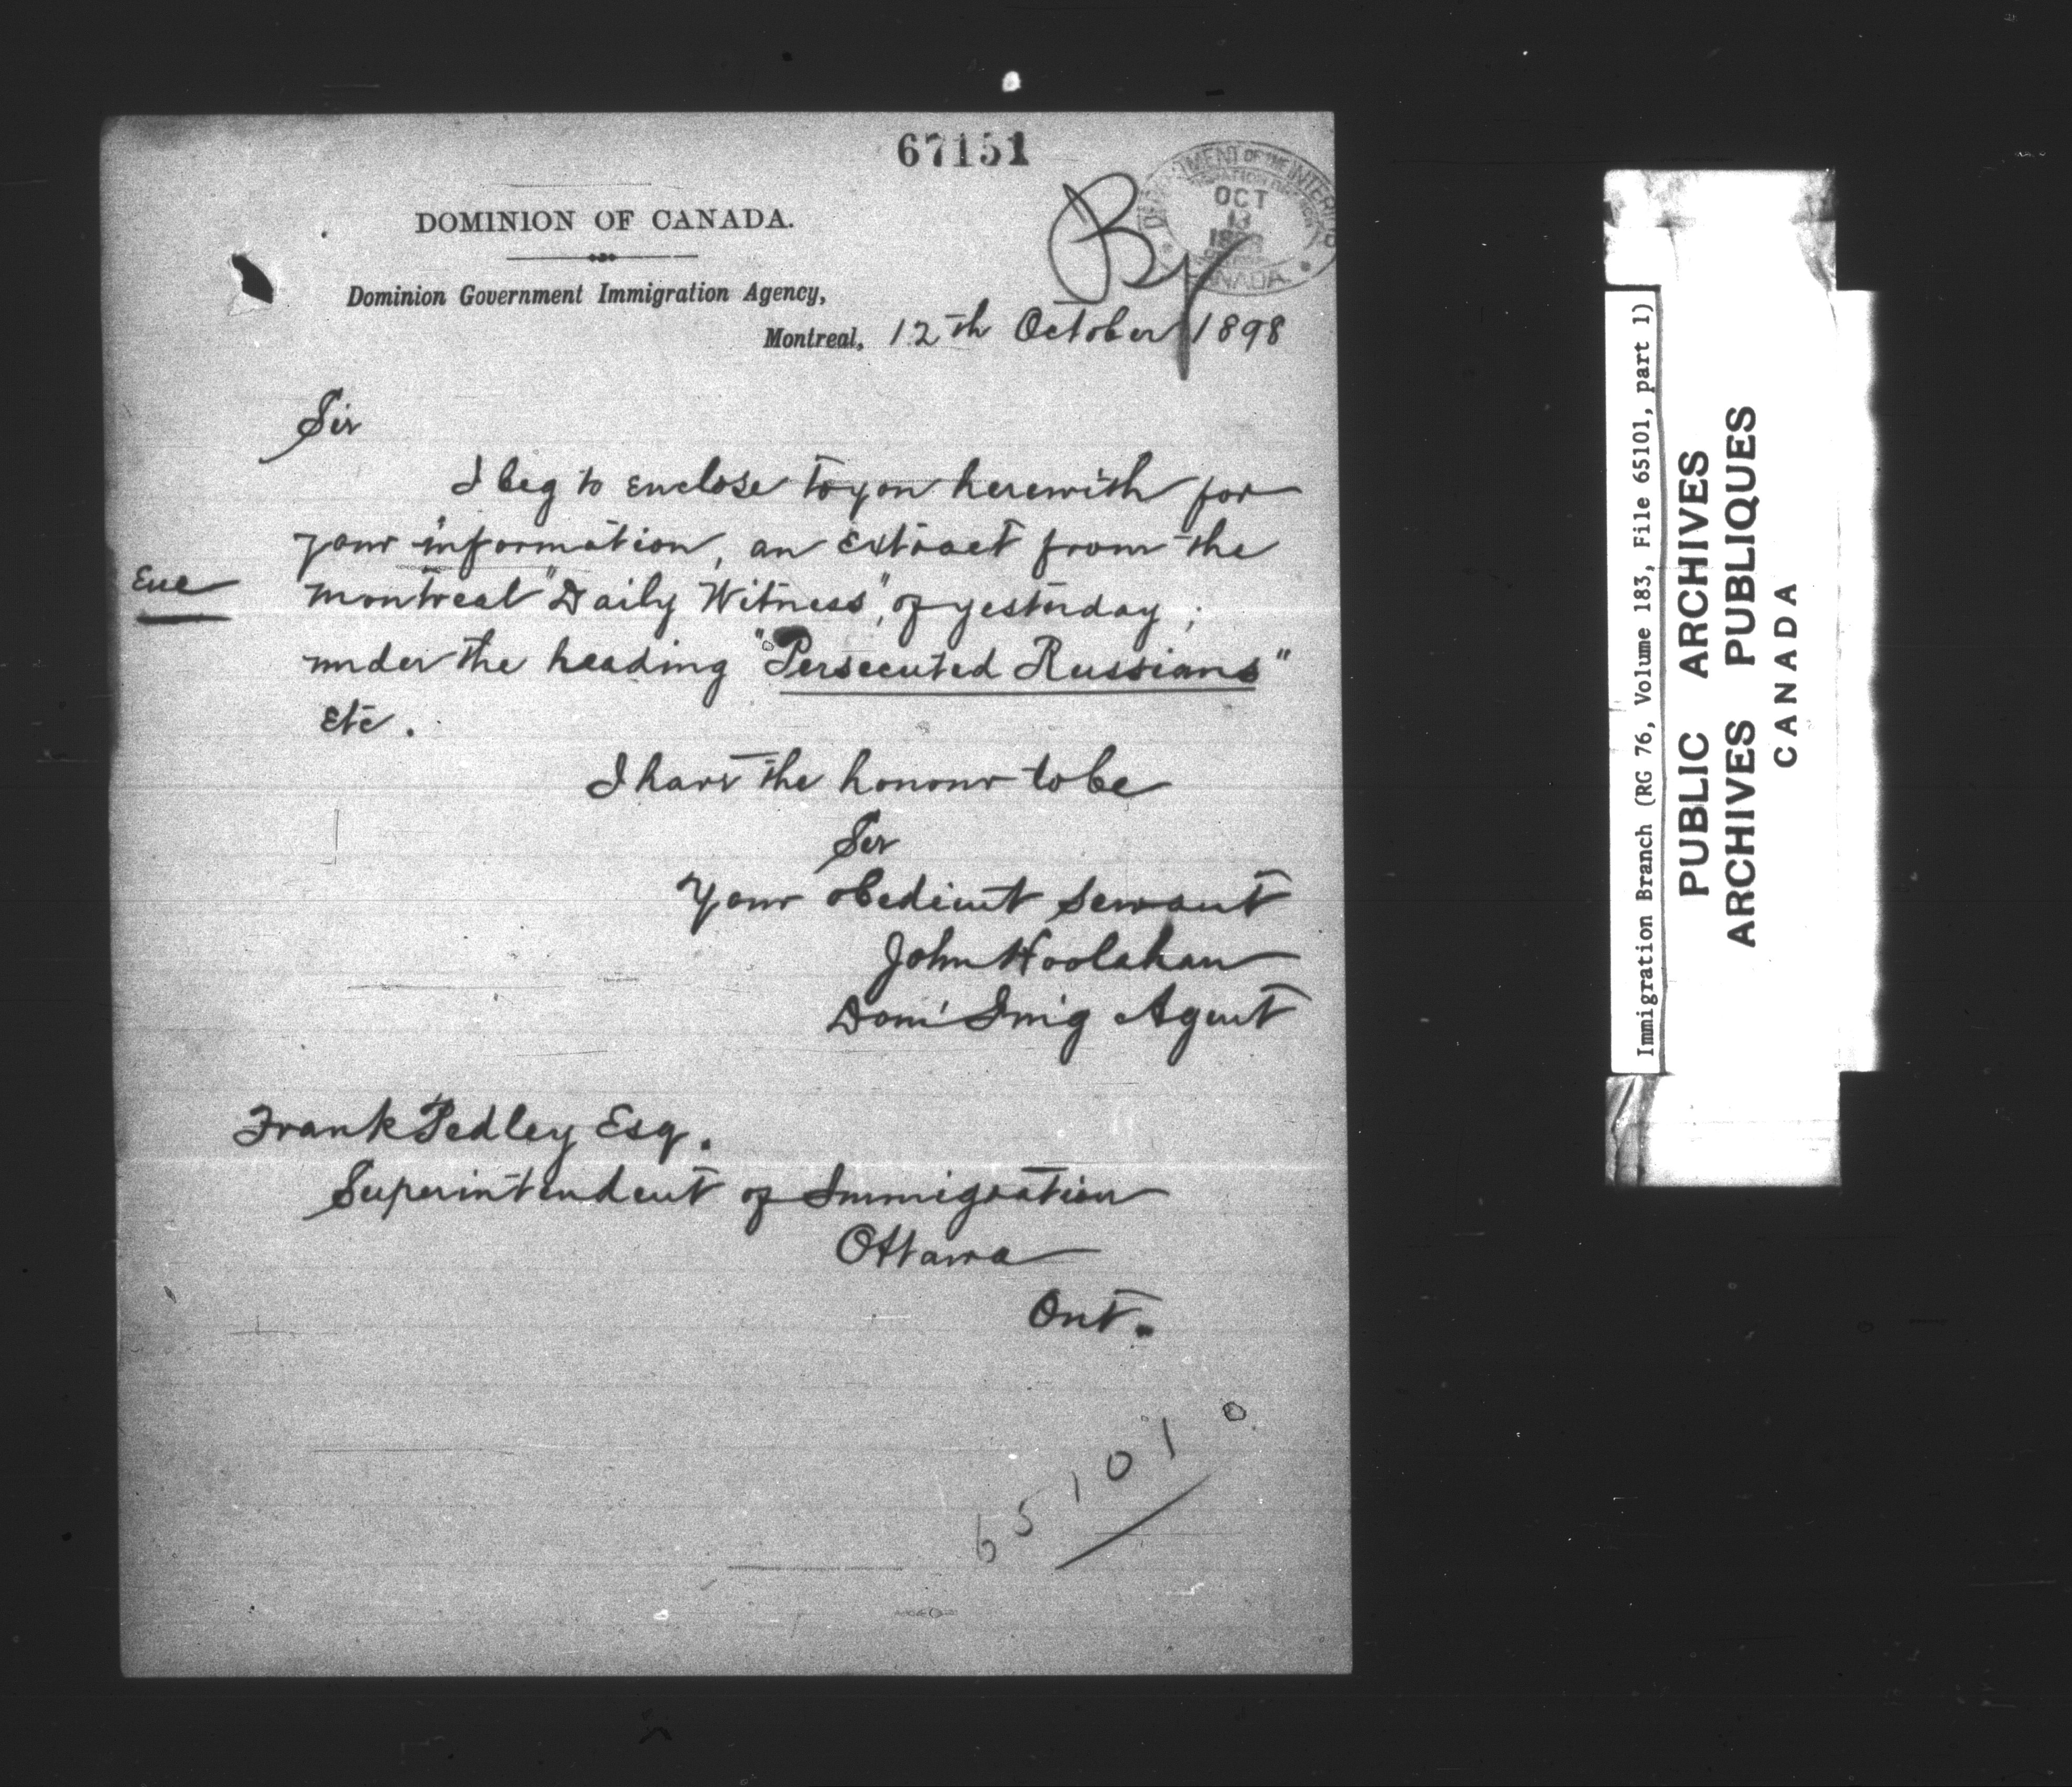 67151
DEPARTMENT OF THE INTERIOR
OCT
13
1898
CANADA
DOMINION OF CANADA.
Dominion Government Immigration Agency,
Montreal, 12th October 1898
Sir
I beg to enclose to you herewith for
your information, an extract from the
Enc
Montreal "Daily Witness", of yesterday ;
under the heading "Persecuted Russians"
etc.
I have the honour to be
Sir
Your obedient servant
John Hoolahan
Dom' Imig Agent
Frank Pedley Esq.
Superintendent of Immigration
Ottawa
Ont.
65101
Immigration Branch (RG 76, Volume 183, File 65101, part 1)
PUBLIC ARCHIVES
ARCHIVES PUBLIQUES
CANADA